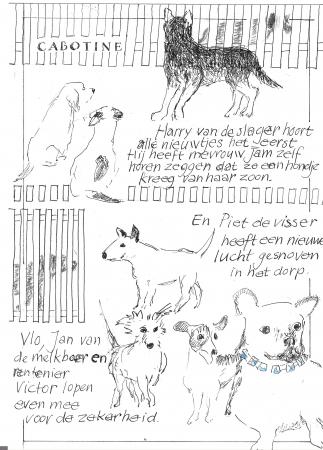 CABOTINE
Harry van de slager hoort
alle nieuwtjes het eerst.
Hij heeft mevrouw Jam zelf
horen zeggen dat ze een hondje
kreeg van haar zoon.
En Piet de visser
heeft een nieuwe
lucht gesnoven
in het dorp.
Vlo, Jan van
de melkboer en
rentenier
Victor lopen
even mee
voor de zekerheid.